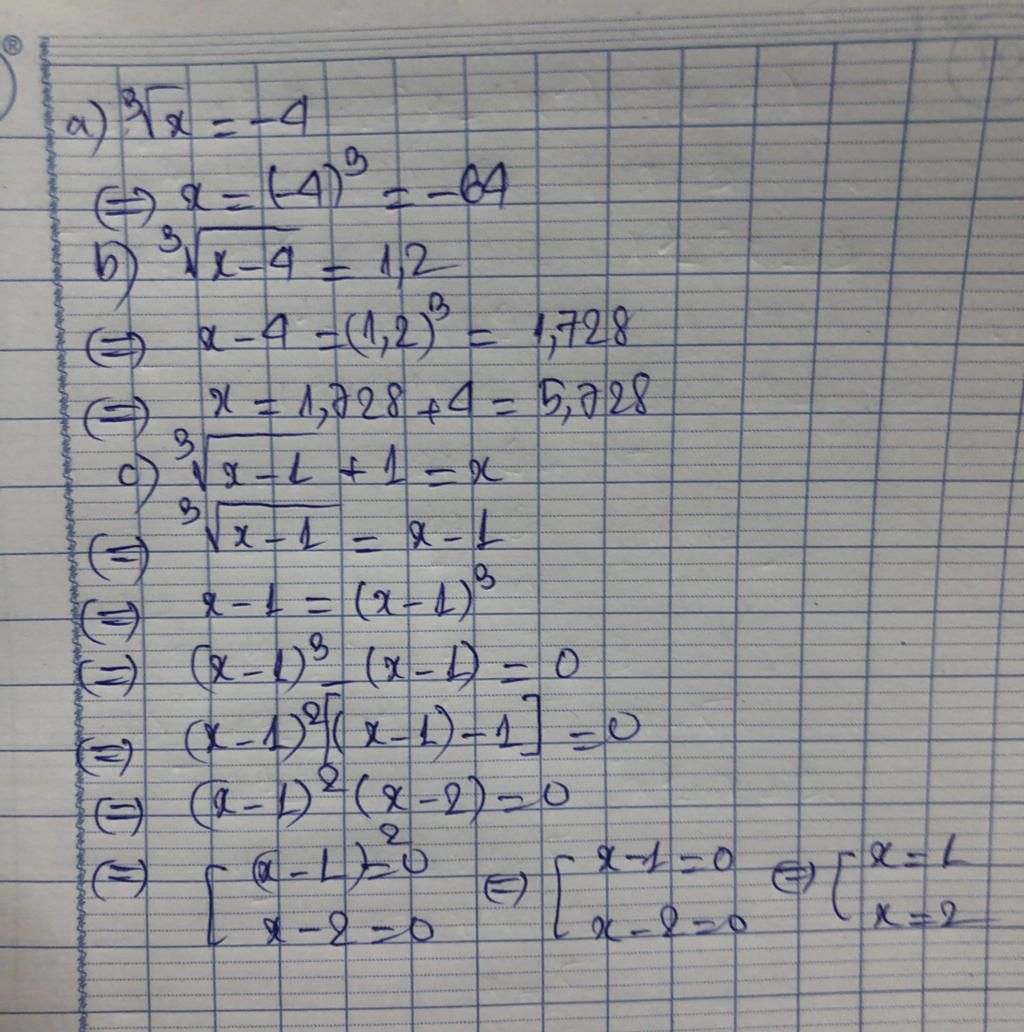 a) ∛x = -4
(=) x = (-4)³ = -64
b) ∛(x-4) = 1,2
(=) x-4 = (1,2)³ = 1,728
(=) x = 1,728 + 4 = 5,728
c) ∛(x-1) + 1 = x
(=) ∛(x-1) = x-1
(=) x-1 = (x-1)³
(=) (x-1)³ - (x-1) = 0
(=) (x-1)²[(x-1)-1] = 0
(=) (x-1)² (x-2) = 0
(=) [ (x-1)² = 0 (=) [ x-1 = 0 (=) [ x = 1
x-2 = 0 x-2 = 0 x = 2